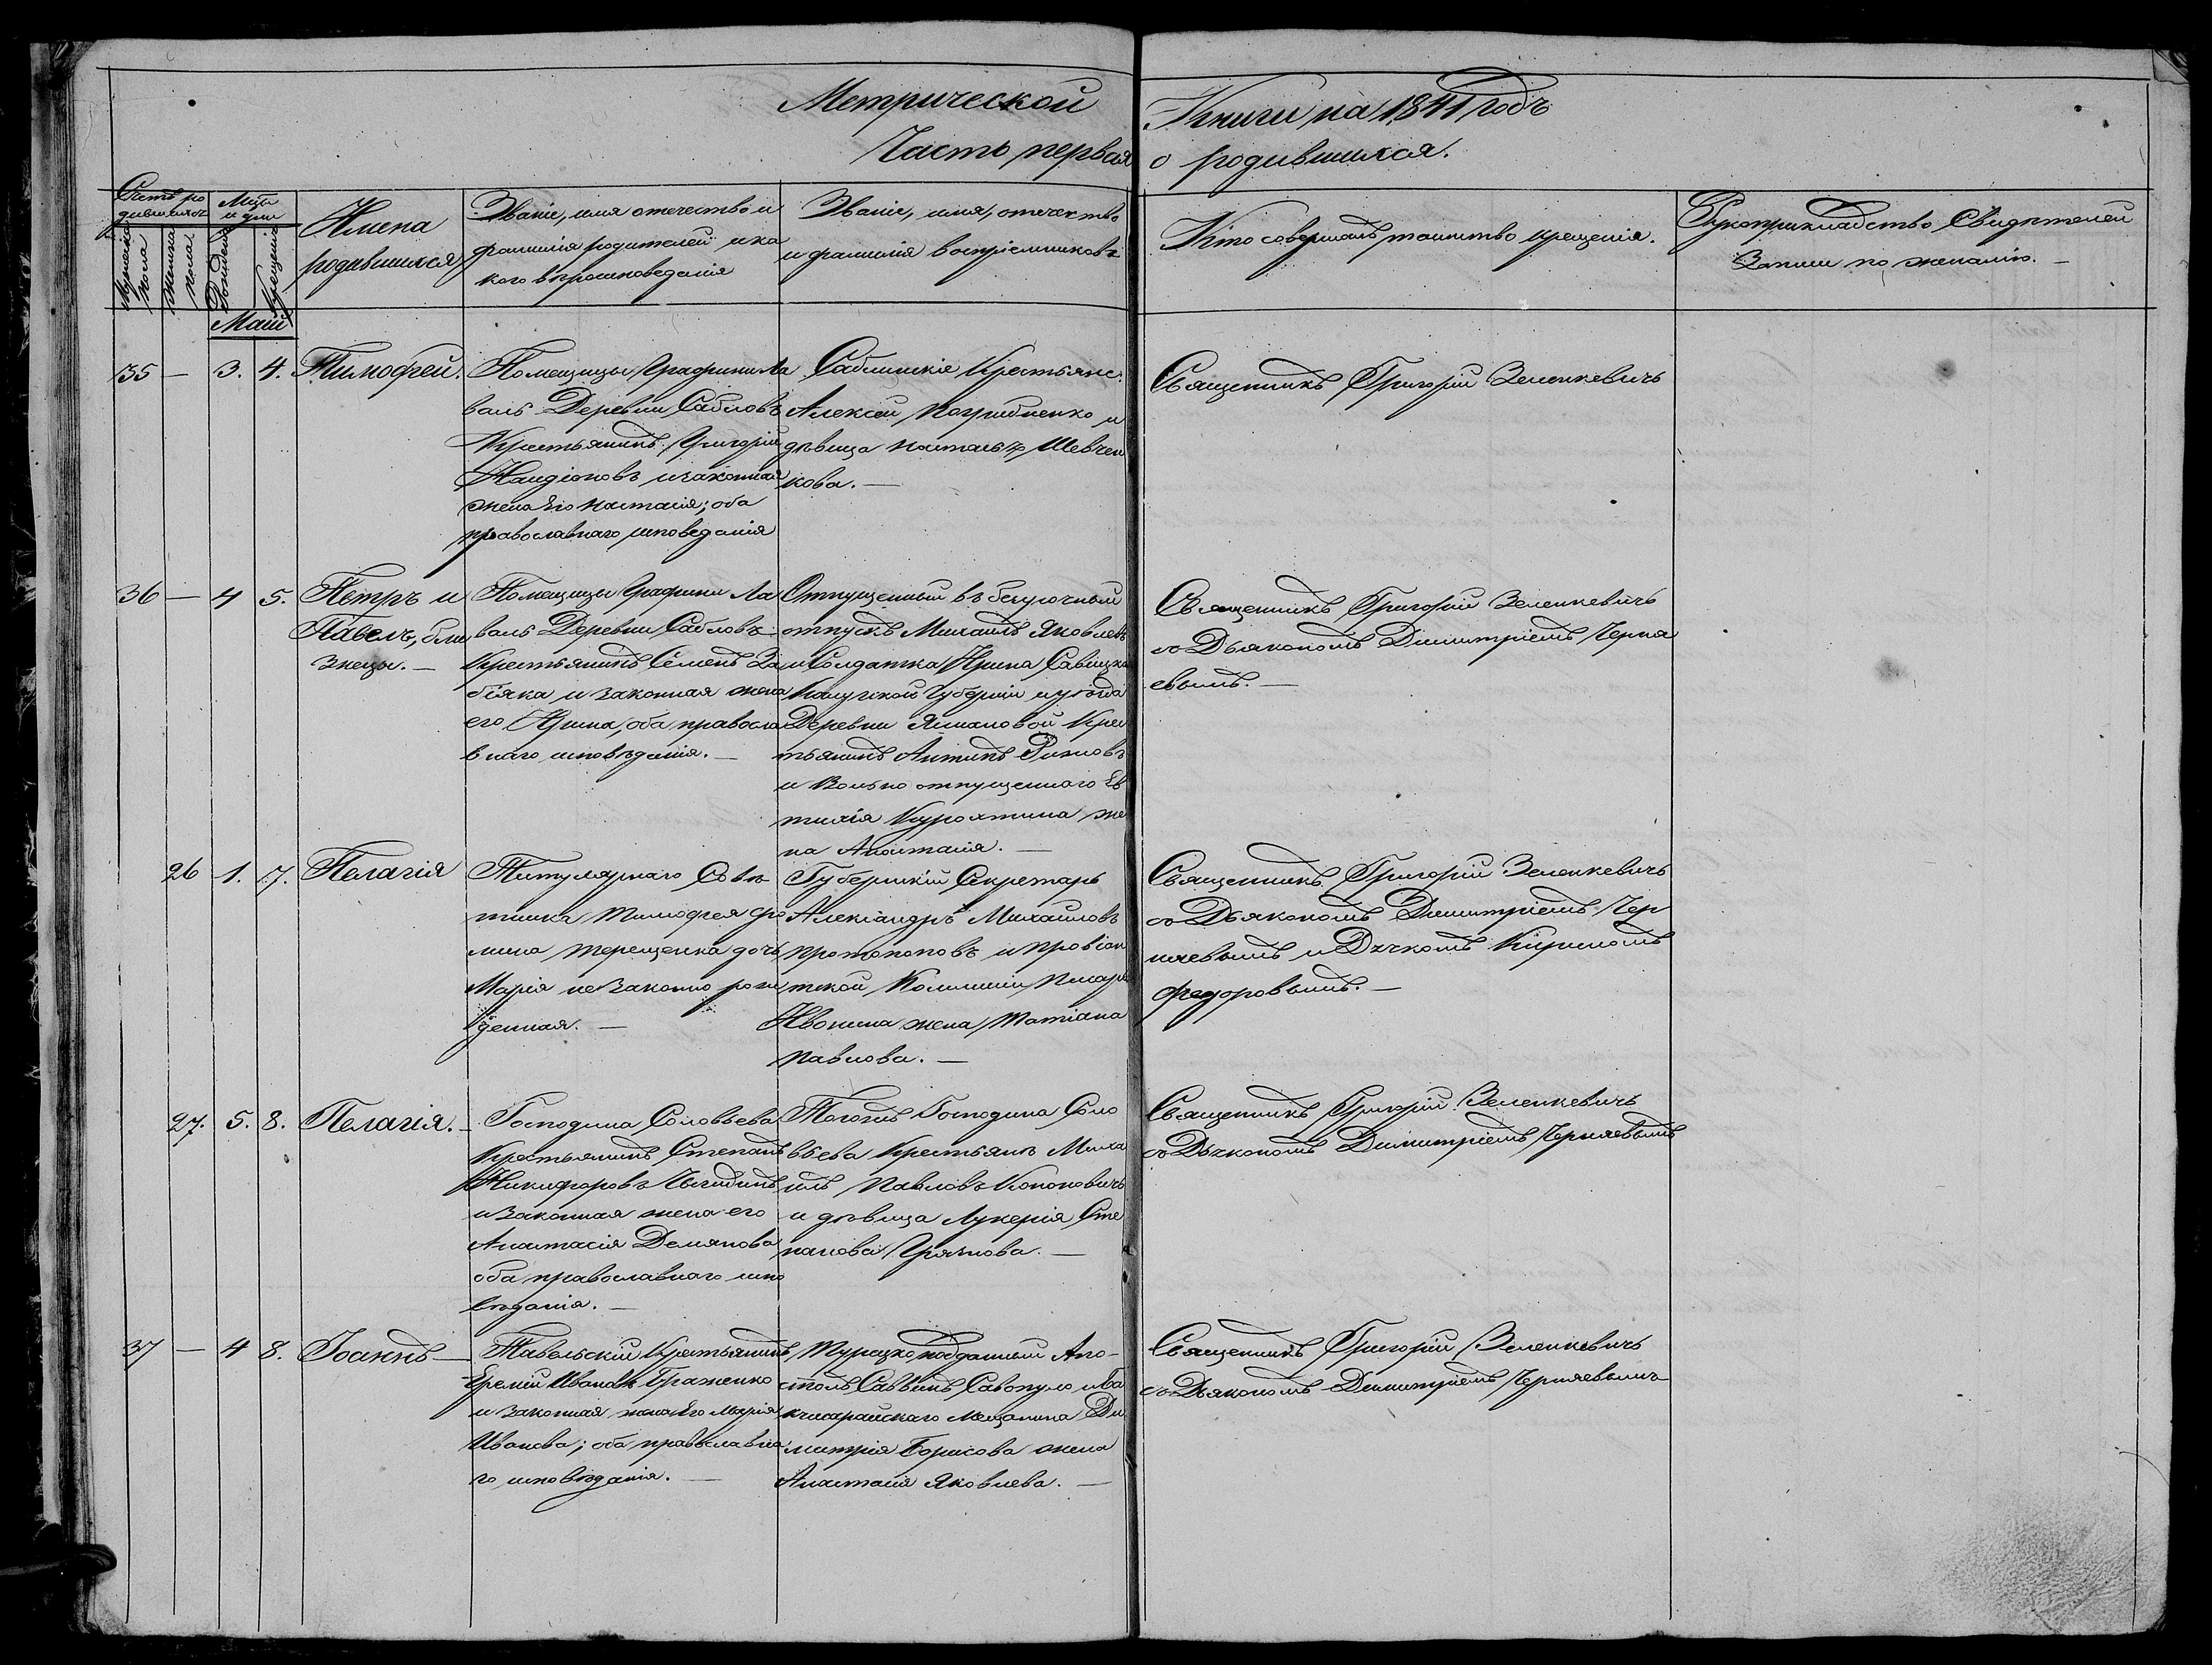 Метрической
Книги на 1841 годъ
Часть первая
о родившихся.
Счетъ ро
дившихся
Мужеска
пола
Женска
пола
Мѣсц
и дни
Рожденія
Крещенія
Имена
родившихся
Званіе, имя отечество и
фамилія родителей и ка
кого вѣроисповеданія
Званіе, имя, отечество
и фамилія воспріемниковъ
Кто совершалъ таинство крещенія.
Рукоприкладство Свидѣтелей
Записи по желанію. —
Маій
35 — 3. 4. Тимофей.
Помещицы Графини Ла
валь Деревни Сабловъ
Крестьянинъ Григорій
и законная
жена Его Настасія; оба
православнаго исповеданія
Саблинскіе Крестьяне:
Алексей Погрибненко и
дѣвица Наталья Шевчен
кова. —
Священникъ Григорій Зеленкевичъ
36 — 4 5. Петръ и
Павелъ, бли
знецы. —
Помещицы Графини Ла
валь Деревни Сабловъ
Крестьянинъ Семенъ За
біяка и законная жена
его Ирина, оба правосла
внаго исповѣданія. —
Отпущенный въ безсрочный
отпускъ Михаилъ Яковлевъ
и Солдатка Ирина Савицка
Калужской Губерніи и уѣзда
Деревни Крес
тьянинъ Антипъ
и Вольно отпущеннаго Ев
тихія Курохтина же
на Анастасія. —
Священникъ Григорій Зеленкевичъ
съ Дьякономъ Димитріемъ Черня
евымъ. —
26 1. 7. Пелагія
Титулярнаго Совѣ
тника Тимофея Фо
мина Терещенка дочь
Марія не законно рож
денная. —
Губернскій Секретарь
Александръ Михаиловъ
Протопоповъ и Провіан
тской Комисіи Писаря
Ивонина жена Татіана
Павлова. —
Священникъ Григорій Зеленкевичъ
съ Дьякономъ Димитріемъ Чер
няевымъ и Дячкомъ Кириломъ
Федоровымъ. —
27. 5. 8. Пелагія. —
Господина Соловьева
Крестьянинъ Степанъ
Никифоровъ
и Законная жена его
Анастасія Демянова
оба православнаго испо
вѣданія. —
Тогожъ Господина Соло
вьева Крестьяне Миха
илъ Павловъ Кононовичъ
и дѣвица Лукерія Сте
панова Грязнова. —
Священникъ Григорій Зеленкевичъ
съ Дьякономъ Димитріемъ Черняевымъ
37 — 4 8. Іоаннъ —
Тавельскій Крестьянинъ
Еремій Ивановъ Браженко
и законная жена Его Марія
Иванова; оба православна
го исповѣданія. —
Турецко подданный Апо-
столъ Саввинъ Савопуло и Ба
хчисарайскаго Мещанина Ди
митрія Борисова жена
Анастасія Яковлева. —
Священникъ Григорій Зеленкевичъ
съ Дьякономъ Димитріемъ Черняевымъ